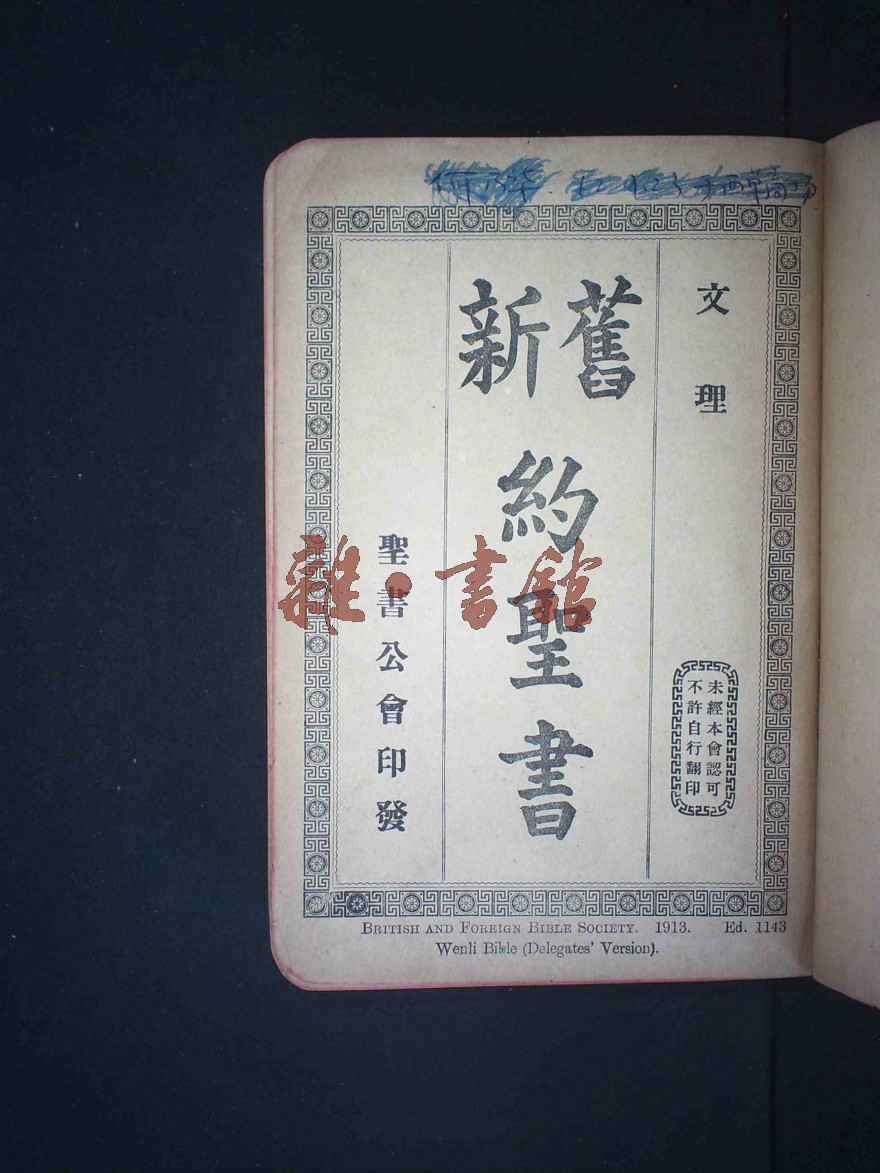 文理
未經本會認可
不許自行翻印
舊新約聖書
聖書公會印發
雜·書館
BRITISH AND FOREIGN BIBLE SOCIETY. 1913. Ed. 1143
Wenli Bible (Delegates' Version).